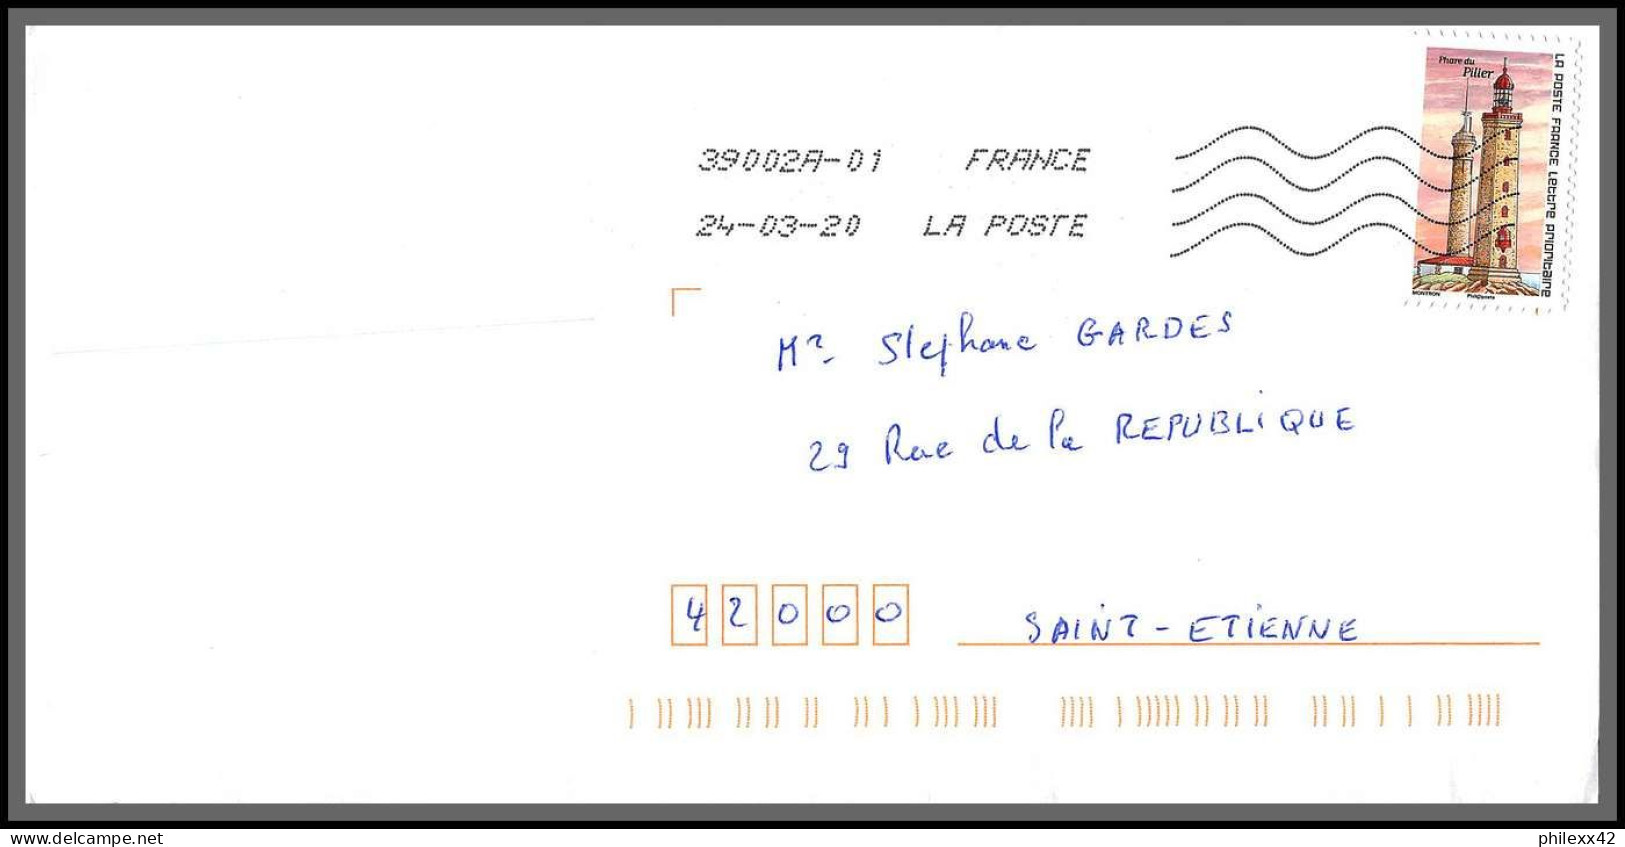 Phare du
Pilier
LA POSTE FRANCE Lettre prioritaire
MONTRON Phil@poste
39002A-01 FRANCE
24-03-20 LA POSTE
Mr Stephane GARDES
29 Rue de la REPUBLIQUE
42000 SAINT-ETIENNE
www.delcampe.net philexx42